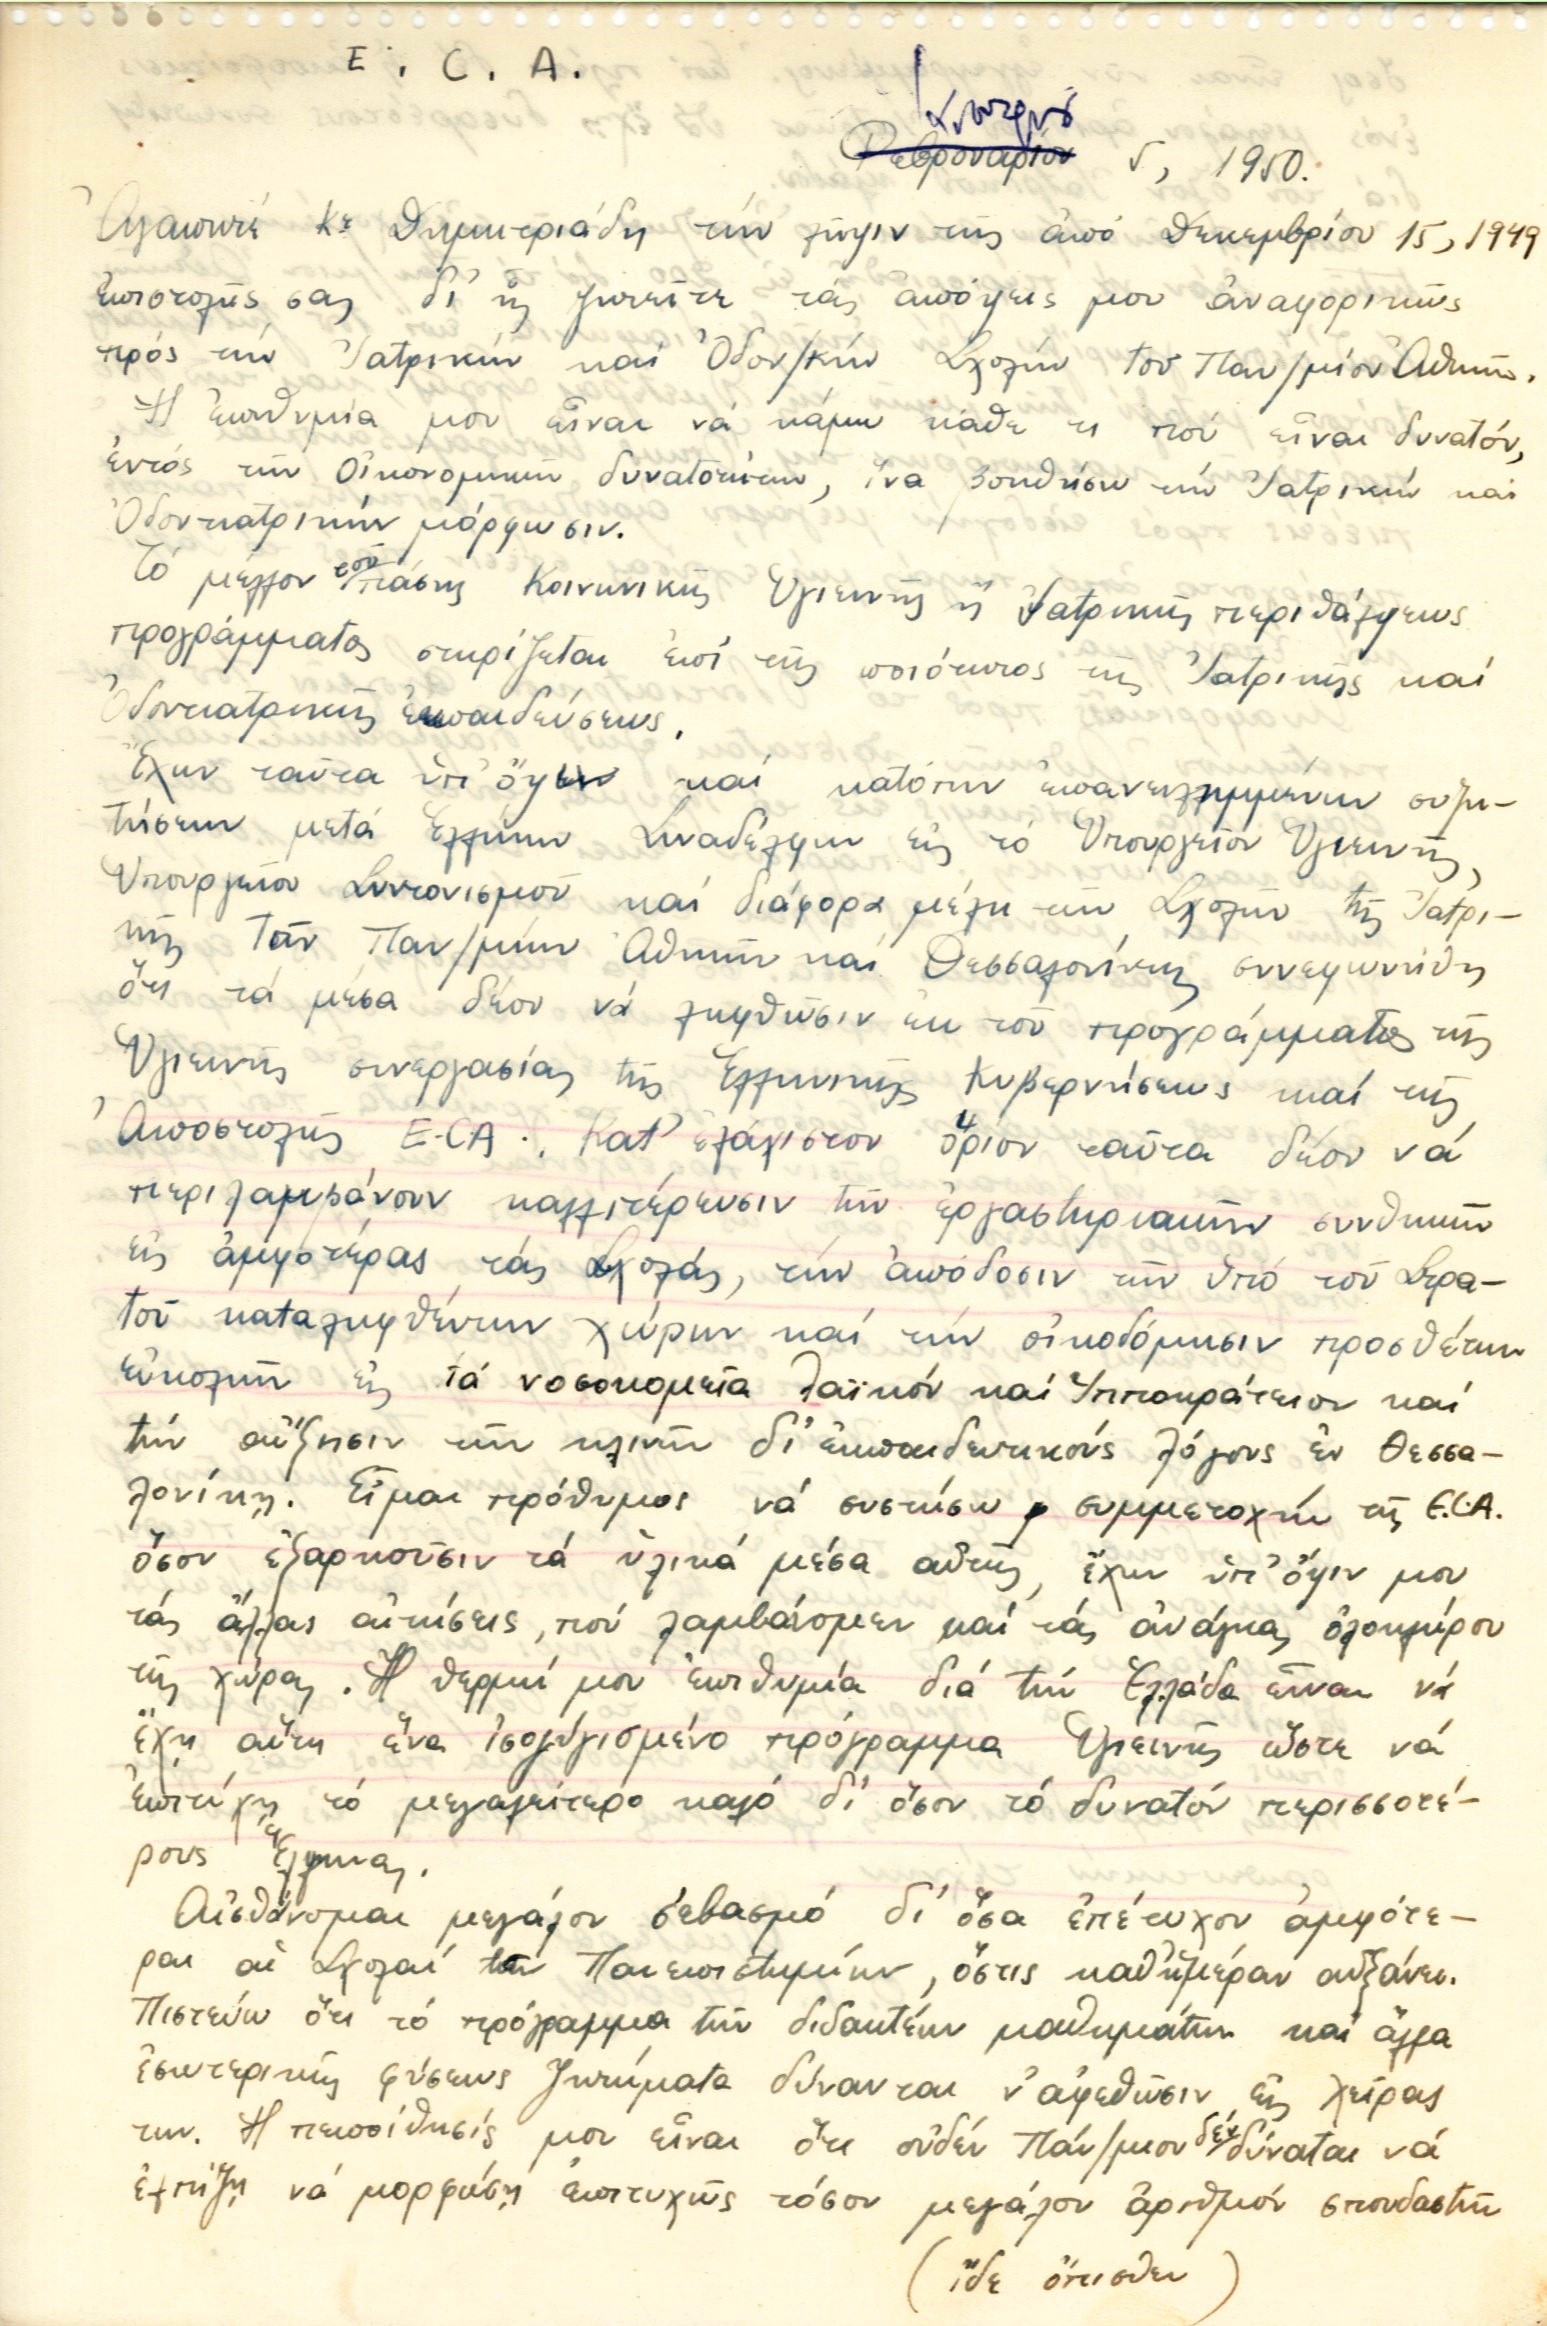 E. C. A.
Φεβρουαρίου 5, 1950.
Ἀγαπητέ Κε Δημητριάδη τήν λῆψιν τῆς ἀπό Δεκεμβρίου 15, 1949
ἐπιστολῆς σας δι' ἧς ζητεῖτε τάς ἀπόψεις μου ἀναφορικῶς
πρός τήν Ἰατρικήν καί Ὀδον/κήν Σχολήν τοῦ Παν/μίου Ἀθηνῶν.
Ἡ ἐπιθυμία μου εἶναι νά κάμω κάθε τι πού εἶναι δυνατόν,
ἐντός τῶν Οἰκονομικῶν δυνατοτήτων, ἵνα βοηθήσω τήν Ἰατρικήν καί
Ὀδοντιατρικήν μόρφωσιν.
Τό μέλλον τοῦ πάσης Κοινωνικῆς Ὑγιεινῆς ἤ Ἰατρικῆς περιθάλψεως
προγράμματος στηρίζεται ἐπί τῆς ποιότητος τῆς Ἰατρικῆς καί
Ὀδοντιατρικῆς ἐκπαιδεύσεως.
Ἔχων ταῦτα ὑπ' ὄψιν καί κατόπιν ἐπανειλημμένων συζη-
τήσεων μετά Ἑλλήνων Συναδέλφων εἰς τό Ὑπουργεῖον Ὑγιεινῆς,
Ὑπουργεῖον Συντονισμοῦ καί διάφορα μέλη τῶν Σχολῶν τῆς Ἰατρι-
κῆς τῶν Παν/μίων Ἀθηνῶν καί Θεσσαλονίκης συνεφωνήθη
ὅτι τά μέσα δέον νά ληφθῶσιν ἐκ τοῦ προγράμματος τῆς
Ὑγιεινῆς συνεργασίας τῆς Ἑλληνικῆς Κυβερνήσεως καί τῆς
Ἀποστολῆς E-CA. Κατ' ἐλάχιστον ὅριον ταῦτα δέον νά
περιλαμβάνουν καλλιτέρευσιν τῶν ἐργαστηριακῶν συνθηκῶν
εἰς ἀμφοτέρας τάς Σχολάς, τήν ἀπόδοσιν τῶν ὑπό τοῦ Στρα-
τοῦ καταληφθέντων χώρων καί τήν οἰκοδόμησιν προσθέτων
εὐκολιῶν εἰς τά νοσοκομεῖα Λαϊκόν καί Ἱπποκράτειον καί
τήν αὔξησιν τῶν κλινῶν δι' ἐκπαιδευτικούς λόγους ἐν Θεσσα-
λονίκῃ. Εἶμαι πρόθυμος νά συστήσω συμμετοχήν τῆς E.C.A.
ὅσον ἐξαρκοῦσιν τά ὑλικά μέσα αὐτῆς, ἔχων ὑπ' ὄψιν μου
τάς ἄλλας αἰτήσεις, πού λαμβάνομεν καί τάς ἀνάγκας ὁλοκλήρου
τῆς χώρας. Ἡ θερμή μου ἐπιθυμία διά τήν Ἑλλάδα εἶναι νά
ἔχῃ αὕτη ἕνα ἰσοζυγισμένο πρόγραμμα Ὑγιεινῆς ὥστε νά
ἐπιτύχῃ τό μεγαλείτερο καλό δι' ὅσον τό δυνατόν περισσοτέ-
ρους Ἕλληνας.
Αἰσθάνομαι μεγάλον σεβασμό δι' ὅσα ἐπέτυχον ἀμφότε-
ραι αἱ Σχολαί τῶν Πανεπιστημίων, ὅστις καθ' ἡμέραν αὐξάνει.
Πιστεύω ὅτι τό πρόγραμμα τῶν διδακτέων μαθημάτων καί ἄλλα
ἐσωτερικῆς φύσεως ζητήματα δύνανται ν' ἀφεθῶσιν εἰς χεῖρας
των. Ἡ πεποίθησίς μου εἶναι ὅτι οὐδέν Παν/μιον δέν δύναται νά
ἐλπίζῃ νά μορφώσῃ ἐπιτυχῶς τόσον μεγάλον ἀριθμόν σπουδαστῶν
(ἴδε ὄπισθεν)